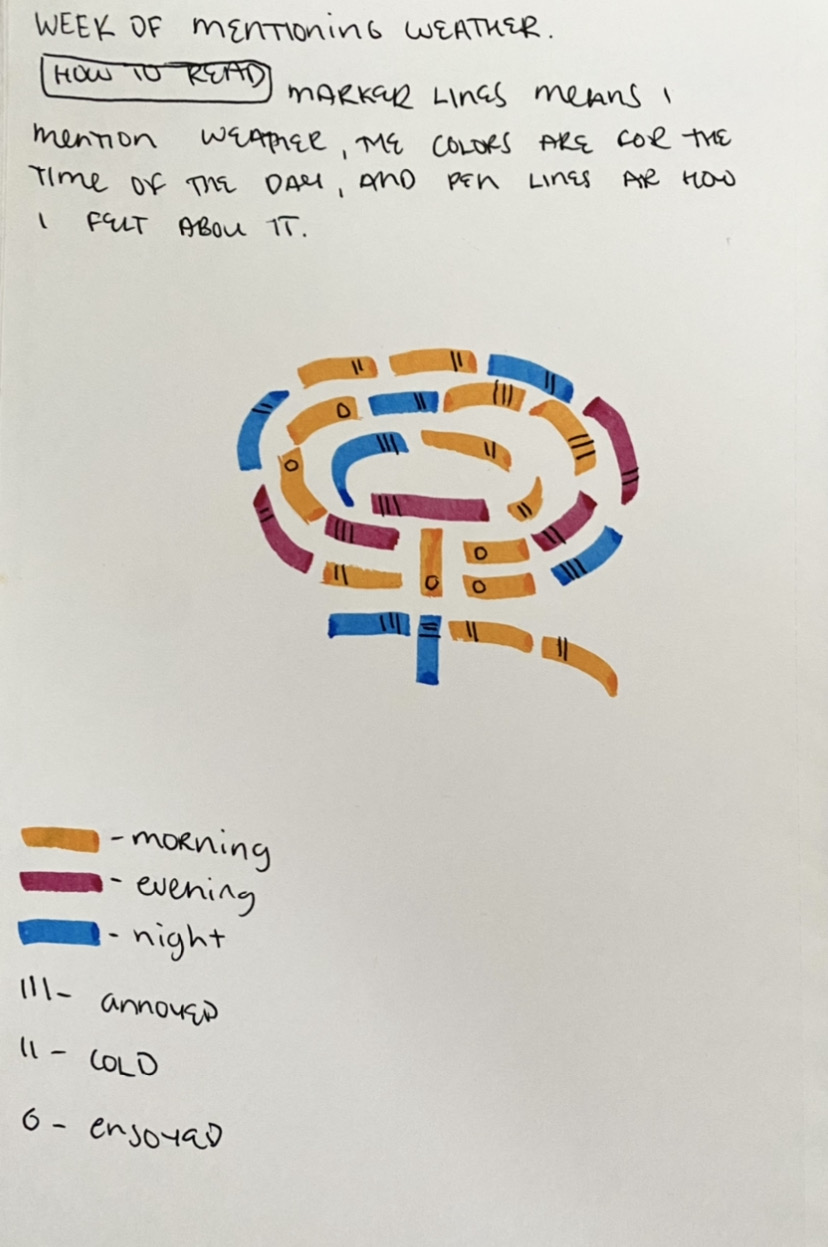 WEEK OF MENTIONING WEATHER.
HOW TO READ MARKER LINES MEANS I
MENTION WEATHER, THE COLORS ARE FOR THE
TIME OF THE DAY, AND PEN LINES AR HOW
I FELT ABOU IT.
- morning
- evening
- night
III- ANNOYED
II - COLD
O - ENJOYED